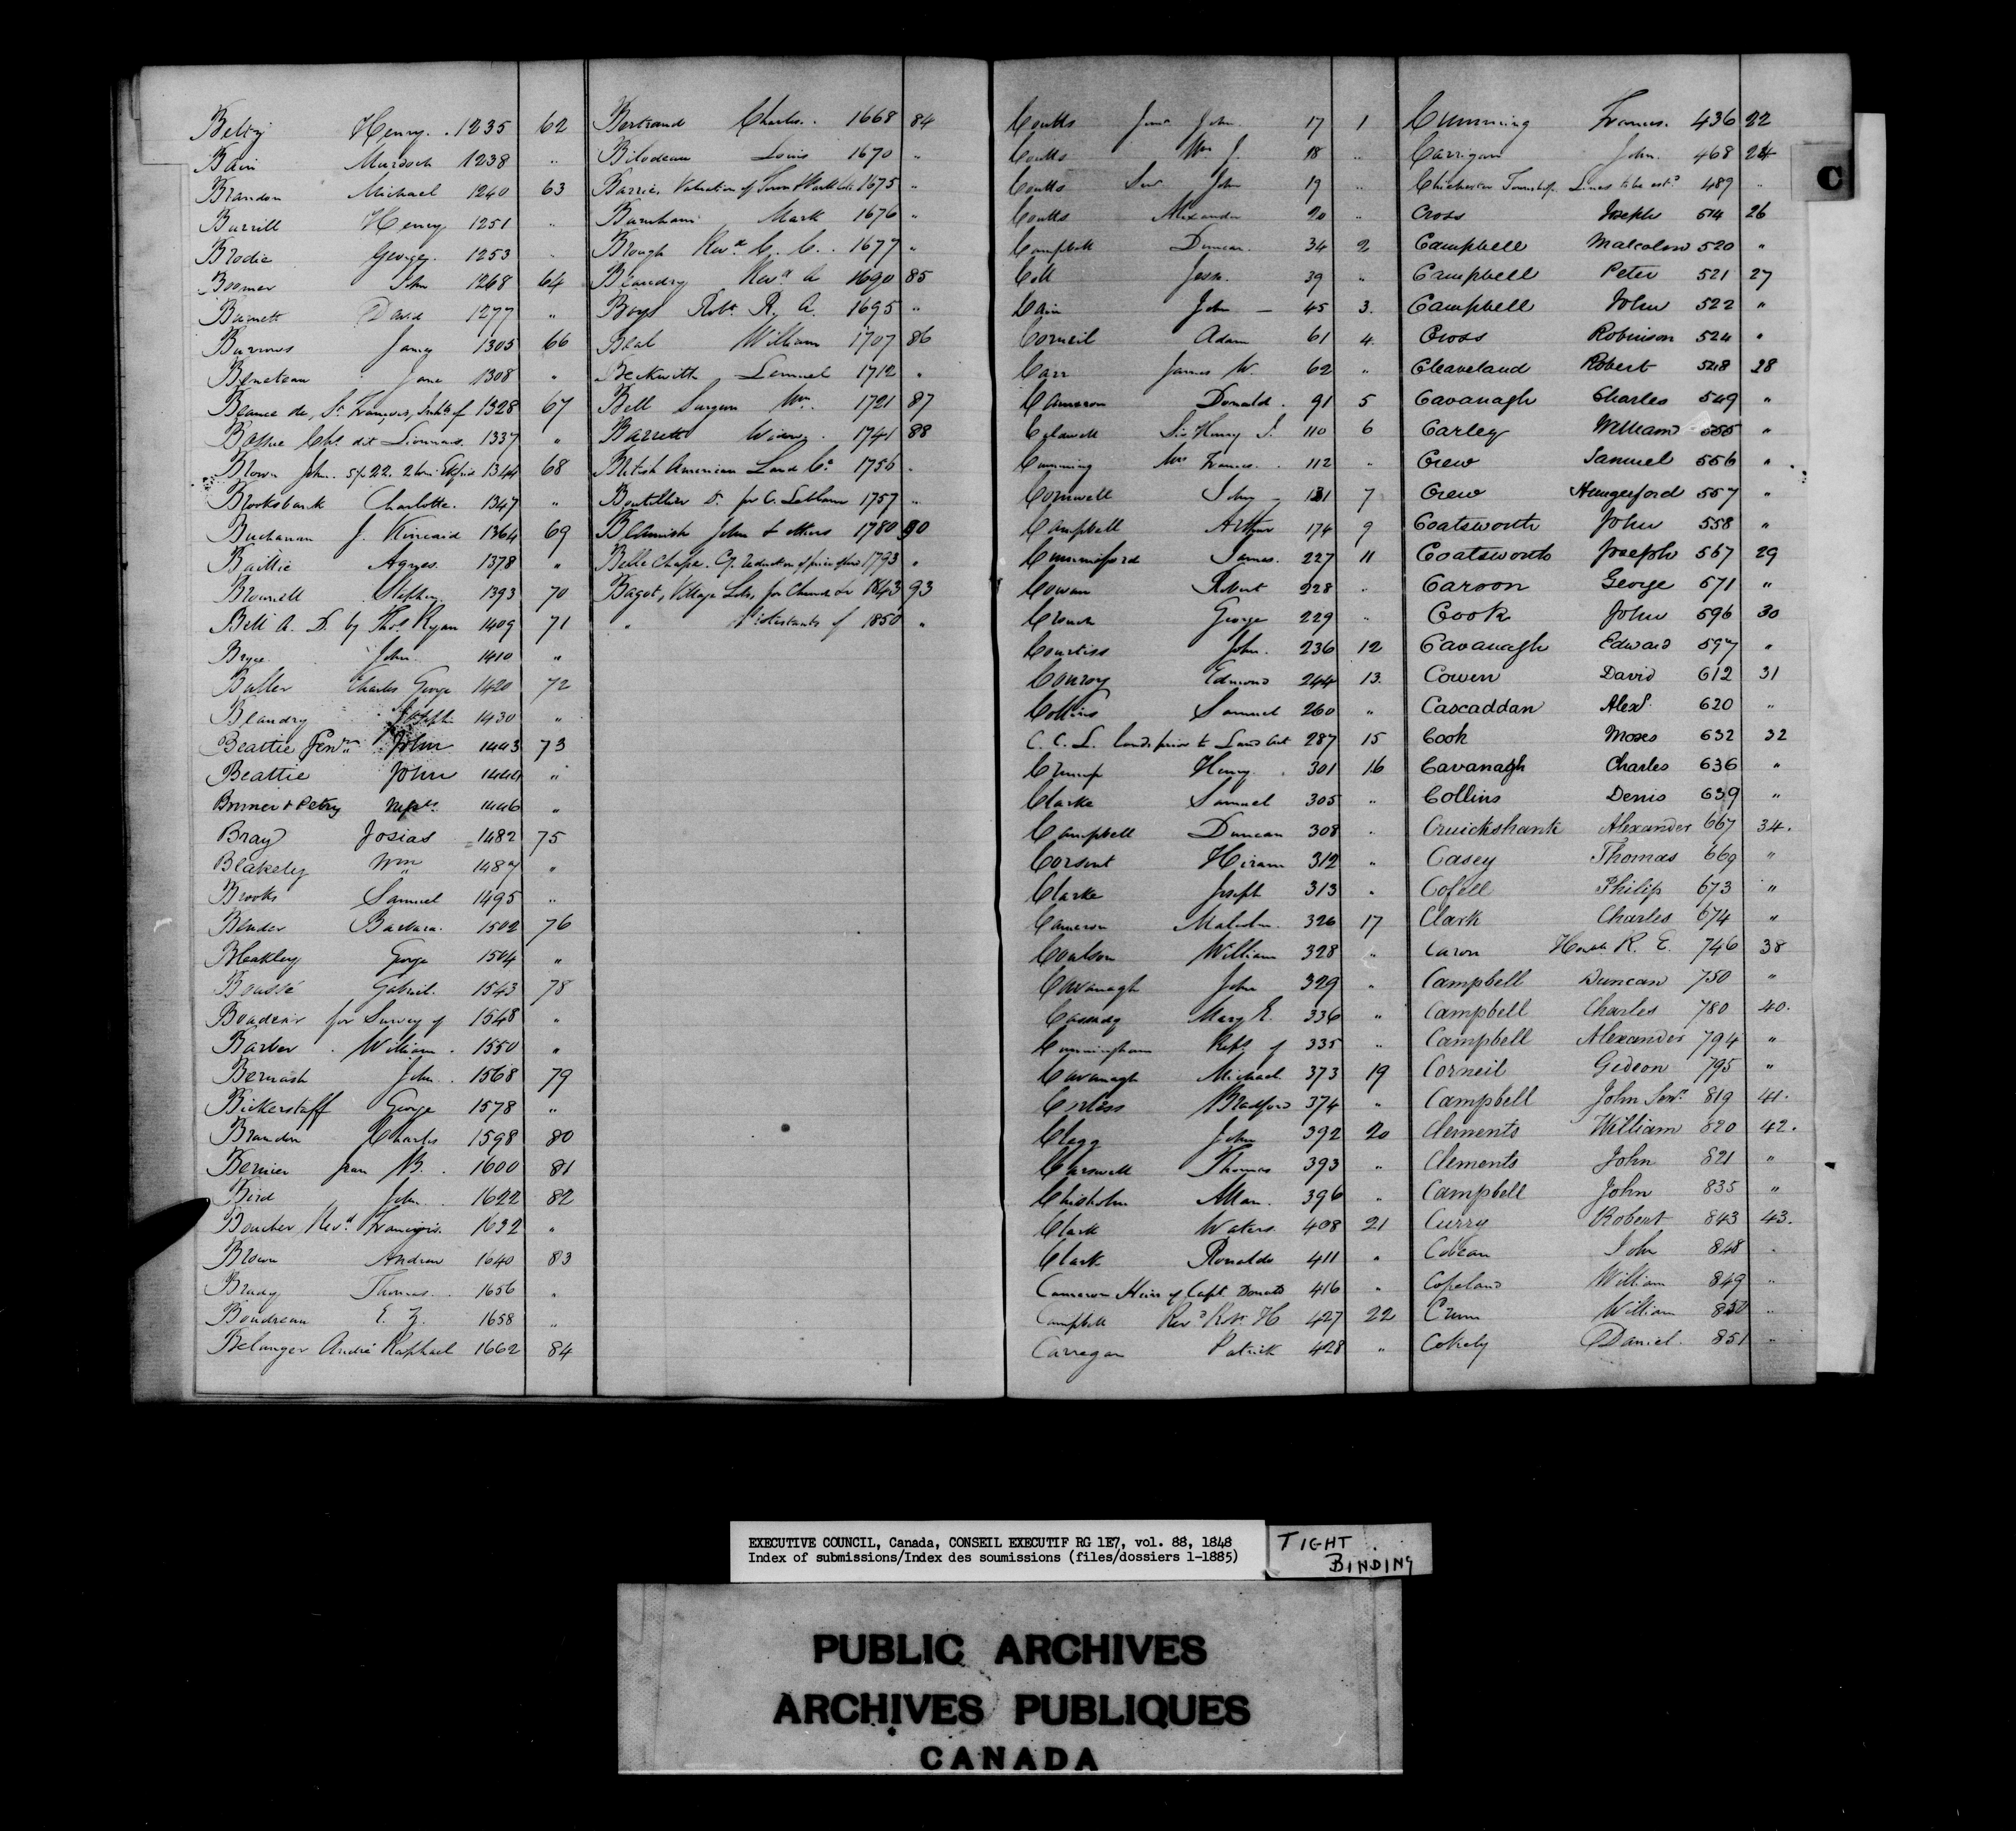 Henry. 1235 62
Bain Murdoch 1238 "
Brandon Michael 1240 63
Burrill Henry 1251 "
Brodie George 1253 "
Boomer John 1268 64
Burnett David 1277 "
Burrows James 1305 66
Beneteau Jane 1308 "
Beauce de, St. François, Inhbts of 1328 67
Chs. dit Lionnais 1337 "
Brown John 1344 68
Brooksbank Charlotte. 1347 "
Buchanan J. Kincaid 1364 69
Baillie Agnes. 1378 "
Brownell Stephen 1393 70
Bell A. D. by Thos. Ryan 1409 71
Bryce John 1410 "
Buller Charles George 1420 72
Beaudry Joseph 1430 "
Beattie Senr. John 1443 73
Beattie John 1444 "
& Petry Messrs. 1446 "
Bray Josias 1482 75
Blakely Wm 1487 "
Brooks Samuel 1495 "
Bender Barbara. 1502 76
Bleakley George 1504 "
Boussé Gabriel. 1543 78
for Survey of 1548 "
Barber William. 1550 "
John. 1568 79
Bickerstaff George 1578 "
Brandon Charles 1598 80
Bernier Jean B. 1600 81
Bird John. 1622 82
Boucher Revd. François. 1632 "
Brown Andrew 1640 83
Brady Thomas. 1656 "
Boudreau E. Z. 1658 "
Belanger André Raphael 1662 84
Bertrand Charles. 1668 84
Bilodeau Louis 1670 "
Barrie, Valuation of Town & Park lots 1675 "
Burnham Mark 1676 "
Brough Revd. C. C. 1677 "
Beaudry Revd. A 1690 85
Boys Robt. R. A. 1695 "
Beal William 1707 86
Beckwith Lemuel 1712 "
Bell Surgeon Wm. 1721 87
Barrett Widow. 1741 88
British American Land Co. 1756 "
Boutillier D. for C. Leblanc 1757 "
Blemish John & others 1780 90
Belle Chasse. Cy. reduction of price of land 1793 "
Bagot, Village Lots, for Church &c 1843 93
" Protestants of 1850 "
Coutts Junr. John 17 1
Coutts Wm J. 18 "
Coutts Senr. John 19 "
Coutts Alexander 20 "
Campbell Duncan. 34 2
Coll Jesse. 39 "
Cain John — 45 3.
Corneil Adam 61 4.
Carr James W. 62 "
Cameron Donald. 91 5
Caldwell Sir Henry J. 110 6
Cumming Mrs Frances. 112 "
Cornwell John 131 7
Campbell Arthur 174 9
James. 227 11
Cowan Robert 228 "
Crouch George 229 "
Courtiss John. 236 12
Conroy Edmond 244 13.
Collins Samuel 260 "
C. C. L. Conds. prior to Land Act 287 15
Crump Henry. 301 16
Clarke Samuel 305 "
Campbell Duncan 308 "
Corsent Hiram 312 "
Clarke Joseph 313 "
Cameron Malcolm. 326 17
Coulson William 328 "
Cavanagh John 329 "
Cassady Mary E. 336 "
Cunningham Reps. of 335 "
Cavanagh Michael. 373 19
Corless Bradford 374 "
Clegg John 392 20
Carswell Thomas 393 "
Chisholm Allan. 396 "
Clark Waters 408 21
Clark Ronaldo 411 "
Cameron Heirs of Capt. Donald 416 "
Campbell Revd. Robt. H 427 22
Carregan Patrick 428 "
Cumming Frances. 436 22
Carrigan John. 468 24
Chichester Township. Lines to be estd. 489 "
Cross Joseph 514 26
Campbell Malcolm 520 "
Campbell Peter 521 27
Campbell John 522 "
Cross Robinson 524 "
Cleaveland Robert 548 28
Cavanagh Charles 549 "
Carley William 555 "
Crew Samuel 556 "
Crew Hungerford 557 "
Coatsworth John 558 "
Coatsworth Joseph 567 29
Caroon George 571 "
Cook John 596 30
Cavanagh Edward 597 "
Cowen David 612 31
Cascaddan Alexr. 620 "
Cook Moses 632 32
Cavanagh Charles 636 "
Collins Denis 639 "
Cruickshank Alexander 667 34.
Casey Thomas 669 "
Cofell Philip 673 "
Clark Charles 674 "
Caron Honble R. E. 746 38
Campbell Duncan 750 "
Campbell Charles 780 40.
Campbell Alexander 794 "
Corneil Gedeon 795 "
Campbell John Senr. 819 41.
Clements William 820 42.
Clements John 821 "
Campbell John 835 "
Curry Robert 843 43.
Cobean John 848 "
Copeland William 849 "
Crum William 850 "
Cokely Daniel. 851 "
C
EXECUTIVE COUNCIL, Canada, CONSEIL EXECUTIF RG 1E7, vol. 88, 1848
Index of submissions/Index des soumissions (files/dossiers 1-1885)
TIGHT
BINDING
PUBLIC ARCHIVES
ARCHIVES PUBLIQUES
CANADA